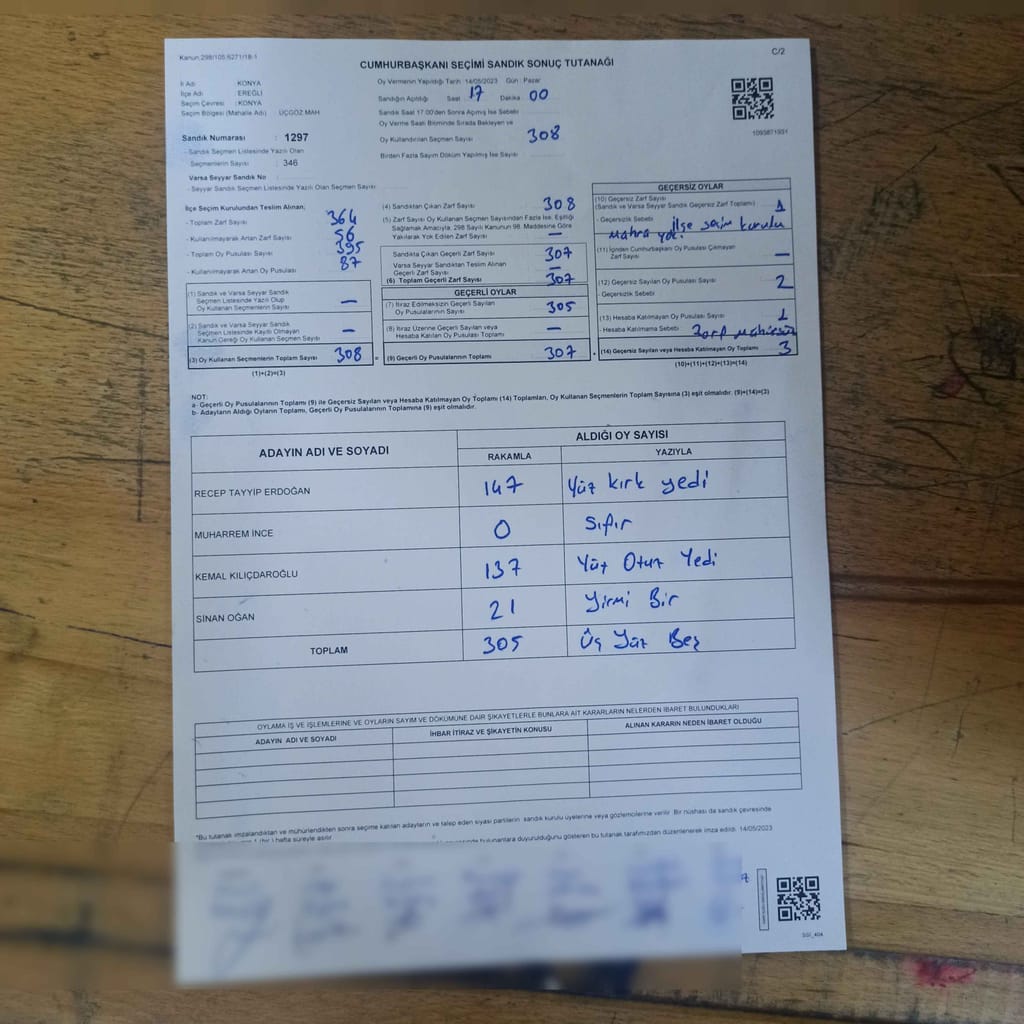 Kanun:298/105:6271/18-1
C/2
CUMHURBAŞKANI SEÇİMİ SANDIK SONUÇ TUTANAĞI
İl Adı : KONYA
İlçe Adı : EREĞLİ
Seçim Çevresi : KONYA
Seçim Bölgesi (Mahalle Adı) : ÜÇGÖZ MAH
Sandık Numarası : 1297
- Sandık Seçmen Listesinde Yazılı Olan
Seçmenlerin Sayısı : 346
Varsa Seyyar Sandık No
- Seyyar Sandık Seçmen Listesinde Yazılı Olan Seçmen Sayısı
Oy Vermenin Yapıldığı Tarih 14/05/2023 Gün : Pazar
Sandığın Açıldığı Saat 17 Dakika 00
Sandık Saat 17:00'den Sonra Açımış İse Sebebi
Oy Verme Saati Bitiminde Sırada Bekleyen ve
Oy Kullandırılan Seçmen Sayısı 308
Birden Fazla Sayım Döküm Yapılmış İse Sayısı
1093871931
İlçe Seçim Kurulundan Teslim Alınan;
- Toplam Zarf Sayısı 364
- Kullanılmayarak Artan Zarf Sayısı 56
- Toplam Oy Pusulası Sayısı 395
- Kullanılmayarak Artan Oy Pusulası 87
(1) Sandık ve Varsa Seyyar Sandık
Seçmen Listesinde Yazılı Olup
Oy Kullanan Seçmenlerin Sayısı —
(2) Sandık ve Varsa Seyyar Sandık
Seçmen Listesinde Kayıtlı Olmayan
Kanun Gereği Oy Kullanan Seçmen Sayısı —
(3) Oy Kullanan Seçmenlerin Toplam Sayısı 308
(1)+(2)=(3)
(4) Sandıktan Çıkan Zarf Sayısı 308
(5) Zarf Sayısı Oy Kullanan Seçmen Sayısından Fazla İse; Eşitliği
Sağlamak Amacıyla, 298 Sayılı Kanunun 98. Maddesine Göre
Yakılarak Yok Edilen Zarf Sayısı —
Sandıkta Çıkan Geçerli Zarf Sayısı 307
Varsa Seyyar Sandıktan Teslim Alınan
Geçerli Zarf Sayısı —
(6) Toplam Geçerli Zarf Sayısı 307
GEÇERLİ OYLAR
(7) İtiraz Edilmeksizin Geçerli Sayılan
Oy Pusulalarının Sayısı 305
(8) İtiraz Üzerine Geçerli Sayılan veya
Hesaba Katılan Oy Pusulası Toplamı —
= (9) Geçerli Oy Pusulalarının Toplamı 307
GEÇERSİZ OYLAR
(10) Geçersiz Zarf Sayısı
(Sandık ve Varsa Seyyar Sandık Geçersiz Zarf Toplamı) 1
- Geçersizlik Sebebi ilçe seçim kurulu
Mührü yok.
(11) İçinden Cumhurbaşkanı Oy Pusulası Çıkmayan
Zarf Sayısı —
(12) Geçersiz Sayılan Oy Pusulası Sayısı 2
- Geçersizlik Sebebi
(13) Hesaba Katılmayan Oy Pusulası Sayısı 1
- Hesaba Katılmama Sebebi Zarf Mühürsüz
+ (14) Geçersiz Sayılan veya Hesaba Katılmayan Oy Toplamı 3
(10)+(11)+(12)+(13)=(14)
NOT:
a- Geçerli Oy Pusulalarının Toplamı (9) ile Geçersiz Sayılan veya Hesaba Katılmayan Oy Toplamı (14) Toplamları, Oy Kullanan Seçmenlerin Toplam Sayısına (3) eşit olmalıdır. (9)+(14)=(3)
b- Adayların Aldığı Oyların Toplamı, Geçerli Oy Pusulalarının Toplamına (9) eşit olmalıdır.
ADAYIN ADI VE SOYADI ALDIĞI OY SAYISI
RAKAMLA YAZIYLA
RECEP TAYYİP ERDOĞAN 147 Yüz kırk yedi
MUHARREM İNCE 0 Sıfır
KEMAL KILIÇDAROĞLU 137 Yüz Otuz Yedi
SİNAN OĞAN 21 Yirmi Bir
TOPLAM 305 Üç Yüz Beş
OYLAMA İŞ VE İŞLEMLERİNE VE OYLARIN SAYIM VE DÖKÜMÜNE DAİR ŞİKAYETLERLE BUNLARA AİT KARARLARIN NELERDEN İBARET BULUNDUKLARI
ADAYIN ADI VE SOYADI İHBAR İTİRAZ VE ŞİKAYETİN KONUSU ALINAN KARARIN NEDEN İBARET OLDUĞU
*Bu tutanak imzalandıktan ve mühürlendikten sonra seçime katılan adayların ve talep eden siyasi partilerin sandık kurulu üyelerine veya gözlemcilerine verilir. Bir nüshası da sandık çevresinde
1 (bir) hafta süreyle asılır. bulunanlara duyurulduğunu gösteren bu tutanak tarafımızdan düzenlenerek imza edildi. 14/05/2023